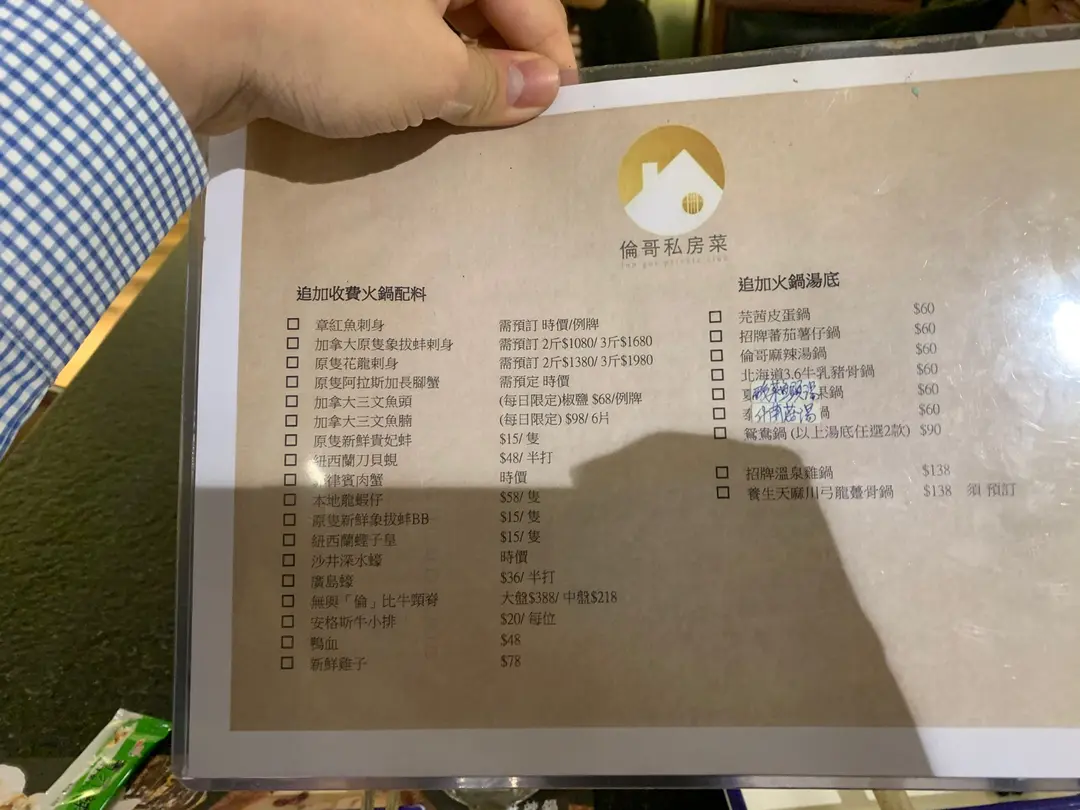 倫哥私房菜
追加收費火鍋配料
章紅魚刺身 需預訂 時價/例牌
加拿大原隻象拔蚌刺身 需預訂 2斤$1080/ 3斤$1680
原隻花龍刺身 需預訂 2斤$1380/ 3斤$1980
原隻阿拉斯加長腳蟹 需預定 時價
加拿大三文魚頭 (每日限定)椒鹽 $68/例牌
加拿大三文魚腩 (每日限定) $98/ 6片
原隻新鮮貴妃蚌 $15/ 隻
紐西蘭刀貝蜆 $48/ 半打
律賓肉蟹 時價
本地龍蝦仔 $58/ 隻
原隻新鮮象拔蚌BB $15/ 隻
紐西蘭蟶子皇 $15/ 隻
沙井深水蠔 時價
廣島蠔 $36/ 半打
無與「倫」比牛頸脊 大盤$388/ 中盤$218
安格斯牛小排 $20/ 每位
鴨血 $48
新鮮雞子 $78
追加火鍋湯底
芫茜皮蛋鍋 $60
招牌番茄薯仔鍋 $60
倫哥麻辣湯鍋 $60
北海道3.6牛乳豬骨鍋 $60
果鍋 $60
鍋 $60
鴛鴦鍋 (以上湯底任選2款) $90
招牌溫泉雞鍋 $138
養生天麻川弓龍躉骨鍋 $138 須 預訂